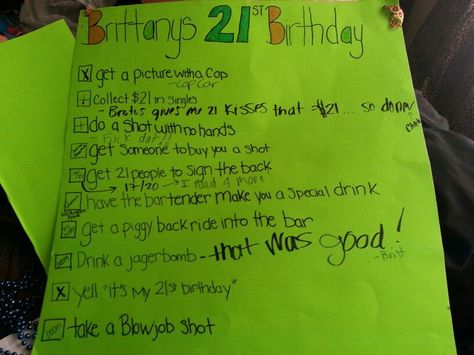 Brittanys 21st Birthday
get a picture with a Cop
- Cop Car
Collect $21 in Singles
- Brutis gives me 21 kisses that = $21... so
do a Shot with no hands
get Someone to buy you a shot
get 21 people to sign the back
17/20 → I need 4 more
have the bartender make you a Special drink
get a piggy back ride into the bar
Drink a jagerbomb -- that was good!
- Britt
Yell "it's My 21st birthday"
take a Blowjob shot